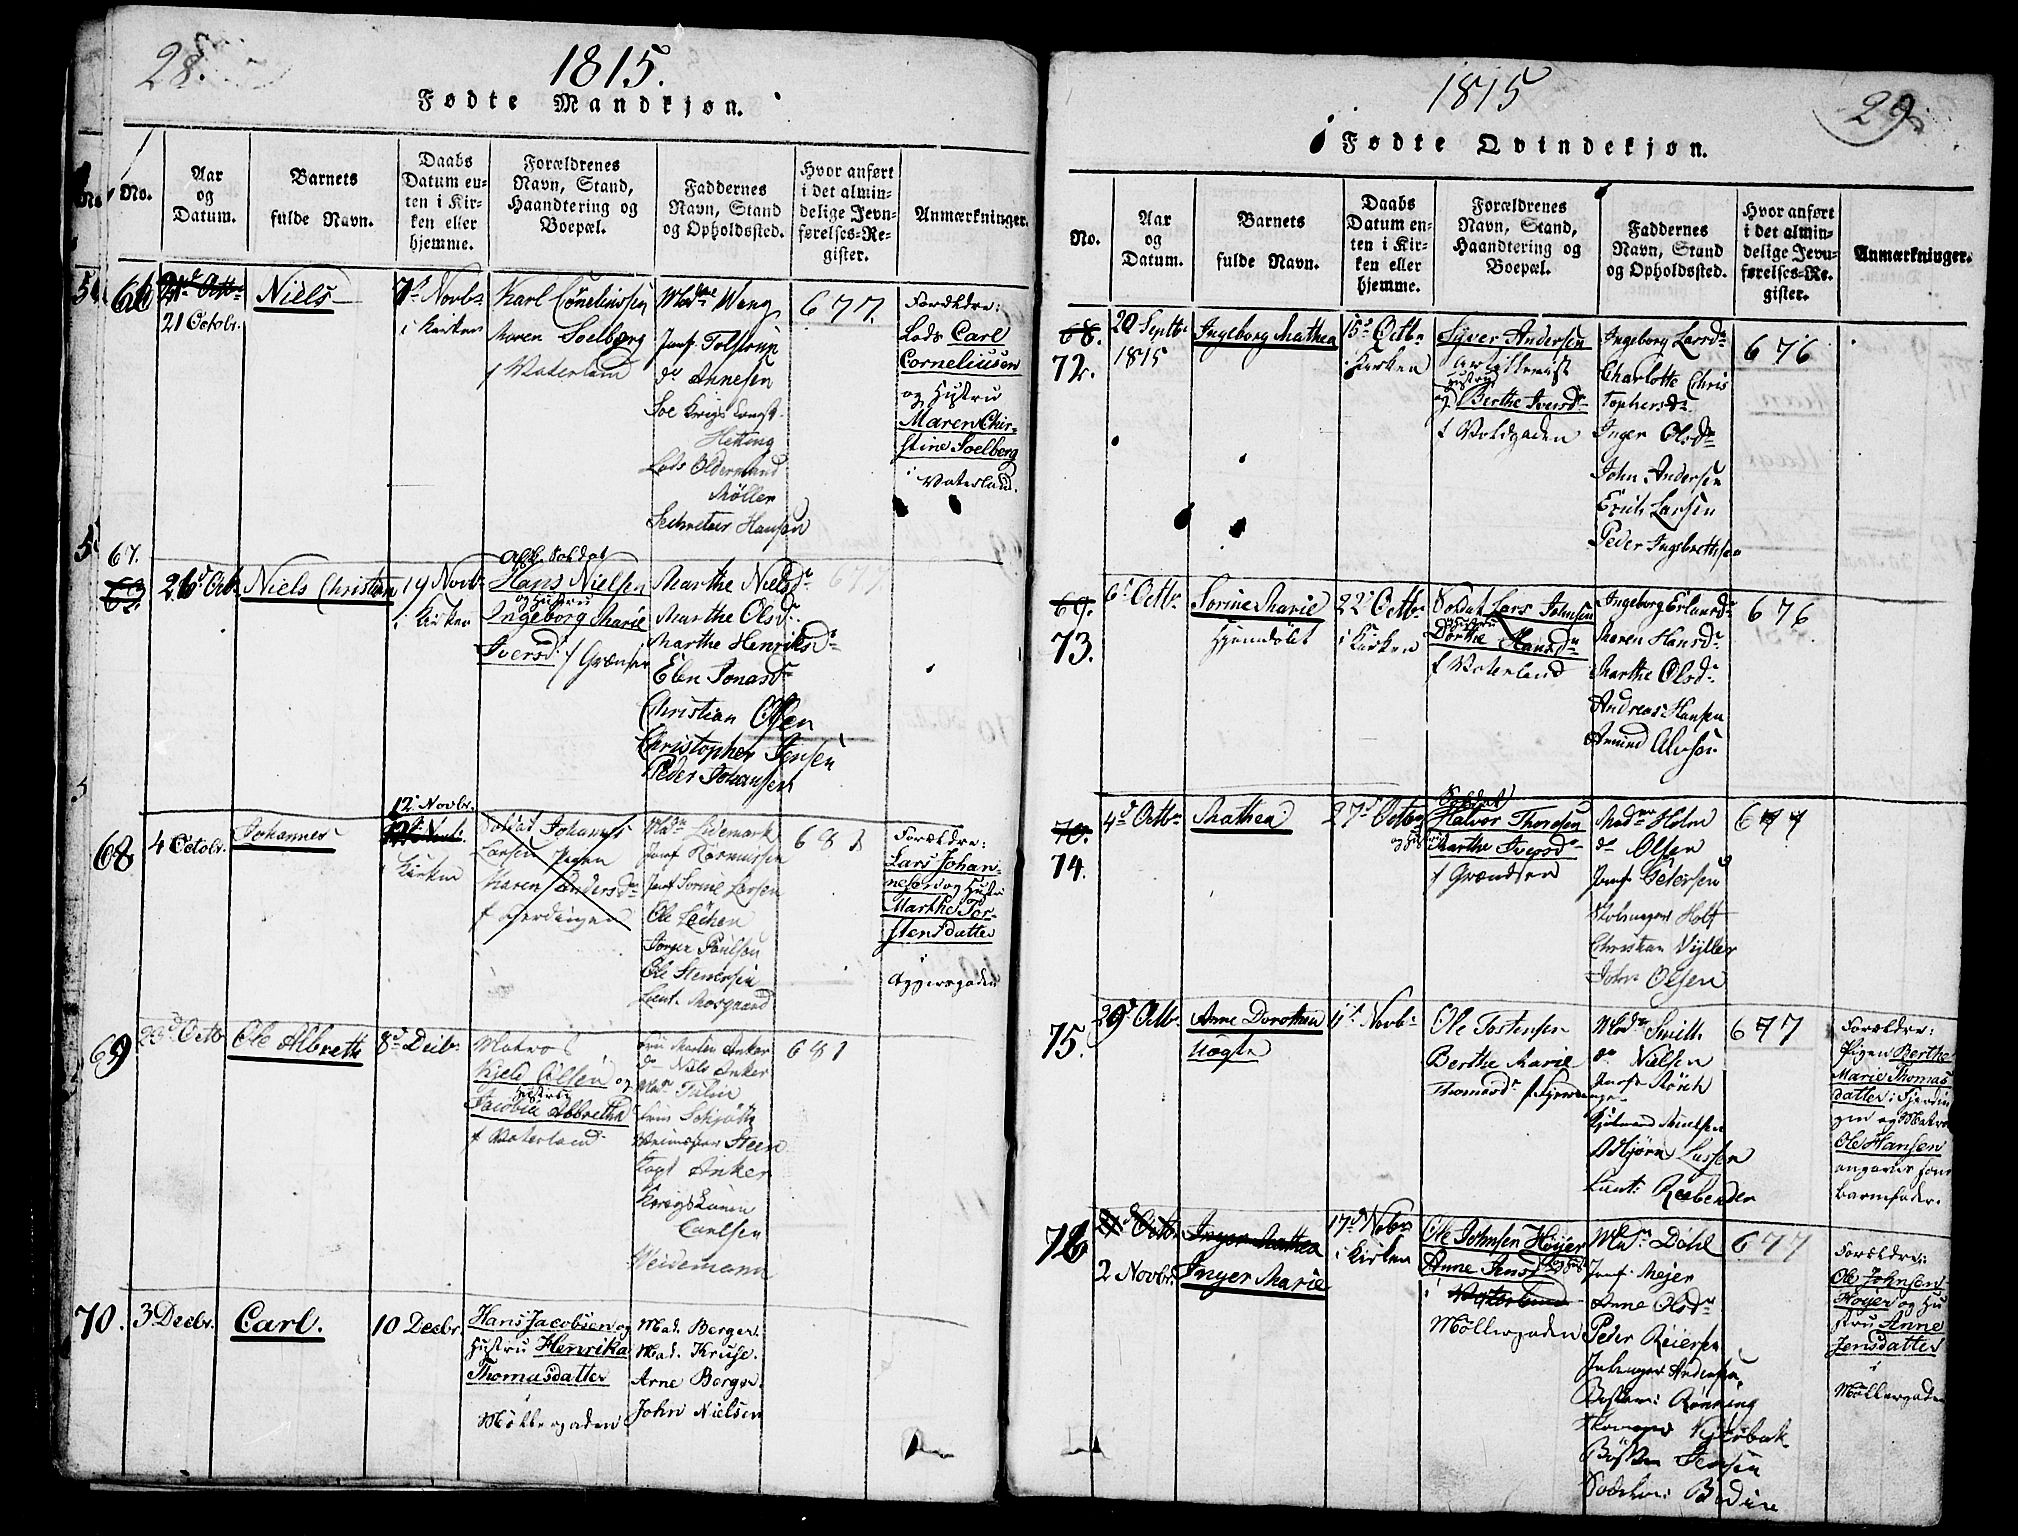 28.
1815.
Fødte Mandkjøn.
No.
Aar og Datum.
Barnets fulde Navn.
Daabs Datum enten i Kirken eller hjemme.
Forældrenes Navn, Stand, Haandtering og Boepæl.
Faddernes Navn, Stand og Opholdssted.
Hvor anført i det almindelige Jevnførelses-Register.
Anmærkninger.
66
21 Octobr.
Niels
7d Novbr
i Kirken
Karl Cornelinssen
Maren Soelberg
f Vaterland
Madme Wang
Jomf. Tolstrup
do Annesen
Hetting
Lods Oldermand
Møller
Secreteer Hansen
677.
Forældre:
Lods Carl
Corneliusen
og Hustru
Maren Chir-
stine Soelberg
i Vaterland.
67.
26d Octb.
Niels Christian
19 Novbr
i Kirken
Soldat
Hans Nielsen
og Hustru
Ingeborg Marie
Iversd. f Grænsen
Marthe Nielsdr
Marthe Olsdr
Marthe Henriksdr
Elen Jonasdr
Christian Olsen
Christopher Jensen
Peder Johansen
677
68
4 Octobr.
Johannes
12 Novbr.
i Kirken
Soldat Johannes
Larsen Pigen
Maren Andersdr
f Fjerdingen
Madm Lidemark
Jomf Rasmussen
Jomf Sornie Larsen
Ole Løchen
Torger Poulsen
Ole Stenersen
Lieut. Mosgaard
681
Forældre:
Lars Johan-
nesen og Hustru
Marthe Tor-
stensdatter
i
Aggersgaden
69
23d Octb
Ole Albreth
8d Decbr
Matros
Kield Olsen og
Hustru
Jacobia Albretha
f Vaterland
Fru Martin Anker
do Niels Anker
Steen
Anker
Carlsen
Weidemann
681
70.
3 Decbr.
Carl.
10 Decbr.
Hans Jacobsen og
Hustru Henrika
Thomasdatter
i
Møllergaden
Mad. Berger.
Mad. Kruse.
Arne Berger.
John Nielsen
1815
29
Fødte Qvindekjøn.
No.
Aar og Datum.
Barnets fulde Navn.
Daabs Datum enten i Kirken eller hjemme.
Forældrenes Navn, Stand, Haandtering og Boepæl.
Faddernes Navn, Stand og Opholdssted.
Hvor anført i det almindelige Jevnførelses-Register.
Anmærkninger.
68.
72.
20 Septbr
1815
Ingeborg Mathea
15d Octbr
i Kirken
Syver Andersen
Artillerist
og Hustru Berthe Iversdr
f Voldgaden
Ingeborg Larsdr
Charlotte Chris
tophersdr
Inger Olsdr
John Andersen
Erich Larsen
Peder Ingebrethsen
676
69.
73.
6d Octbr
Sorine Marie
Hjemdøbt
22d Octbr
i Kirken
Soldat Lars Johnsen
Hustru
Dorthe Hansdr
f Vaterland
Ingeborg Erlandsdr
Maren Hansdr
Marthe Olsdr
Andreas Hansen
Amund Alvsen
676
70.
74.
4d Octbr
Mathea
27d Octbr
Soldat
Halvor Thoresen
og Hustru
Marthe Iversdr
f Grændsen
Madme Holm
do Olsen
Jomf Petersen
Skolemager Holst
Christian Nyller
John Olsen
677
75.
29d Octb.
Anne Dorothea
Uægte
11d Novbr
Ole Torstensen
Berthe Marie
Thomasdr f Fjerdingen
Madme Smith
do Nielsen
Jomf Rønch
Asbjørn Larsen
Lieut: Reebender
677
Forældre:
Pigen Berthe
Marie Thomas
datter i Fjerdin
gen og Matros
Ole Hansen
angives som
Barnefader.
76
2 Novbr.
Inger Mathea
Inger Marie
17d Nobr
i Kirken
Ole Johnsen Høyer
Anne Jensdr
i Vaterland
Møllergaden
Madm Dahl
Jomf. Mejer
Anne Olsdr
Peder Reiersen
Rønning
Jensen
677
Forældre:
Ole Johnsen
Høyer og Hu
stru Anne
Jensdatter
i
Møllergaden